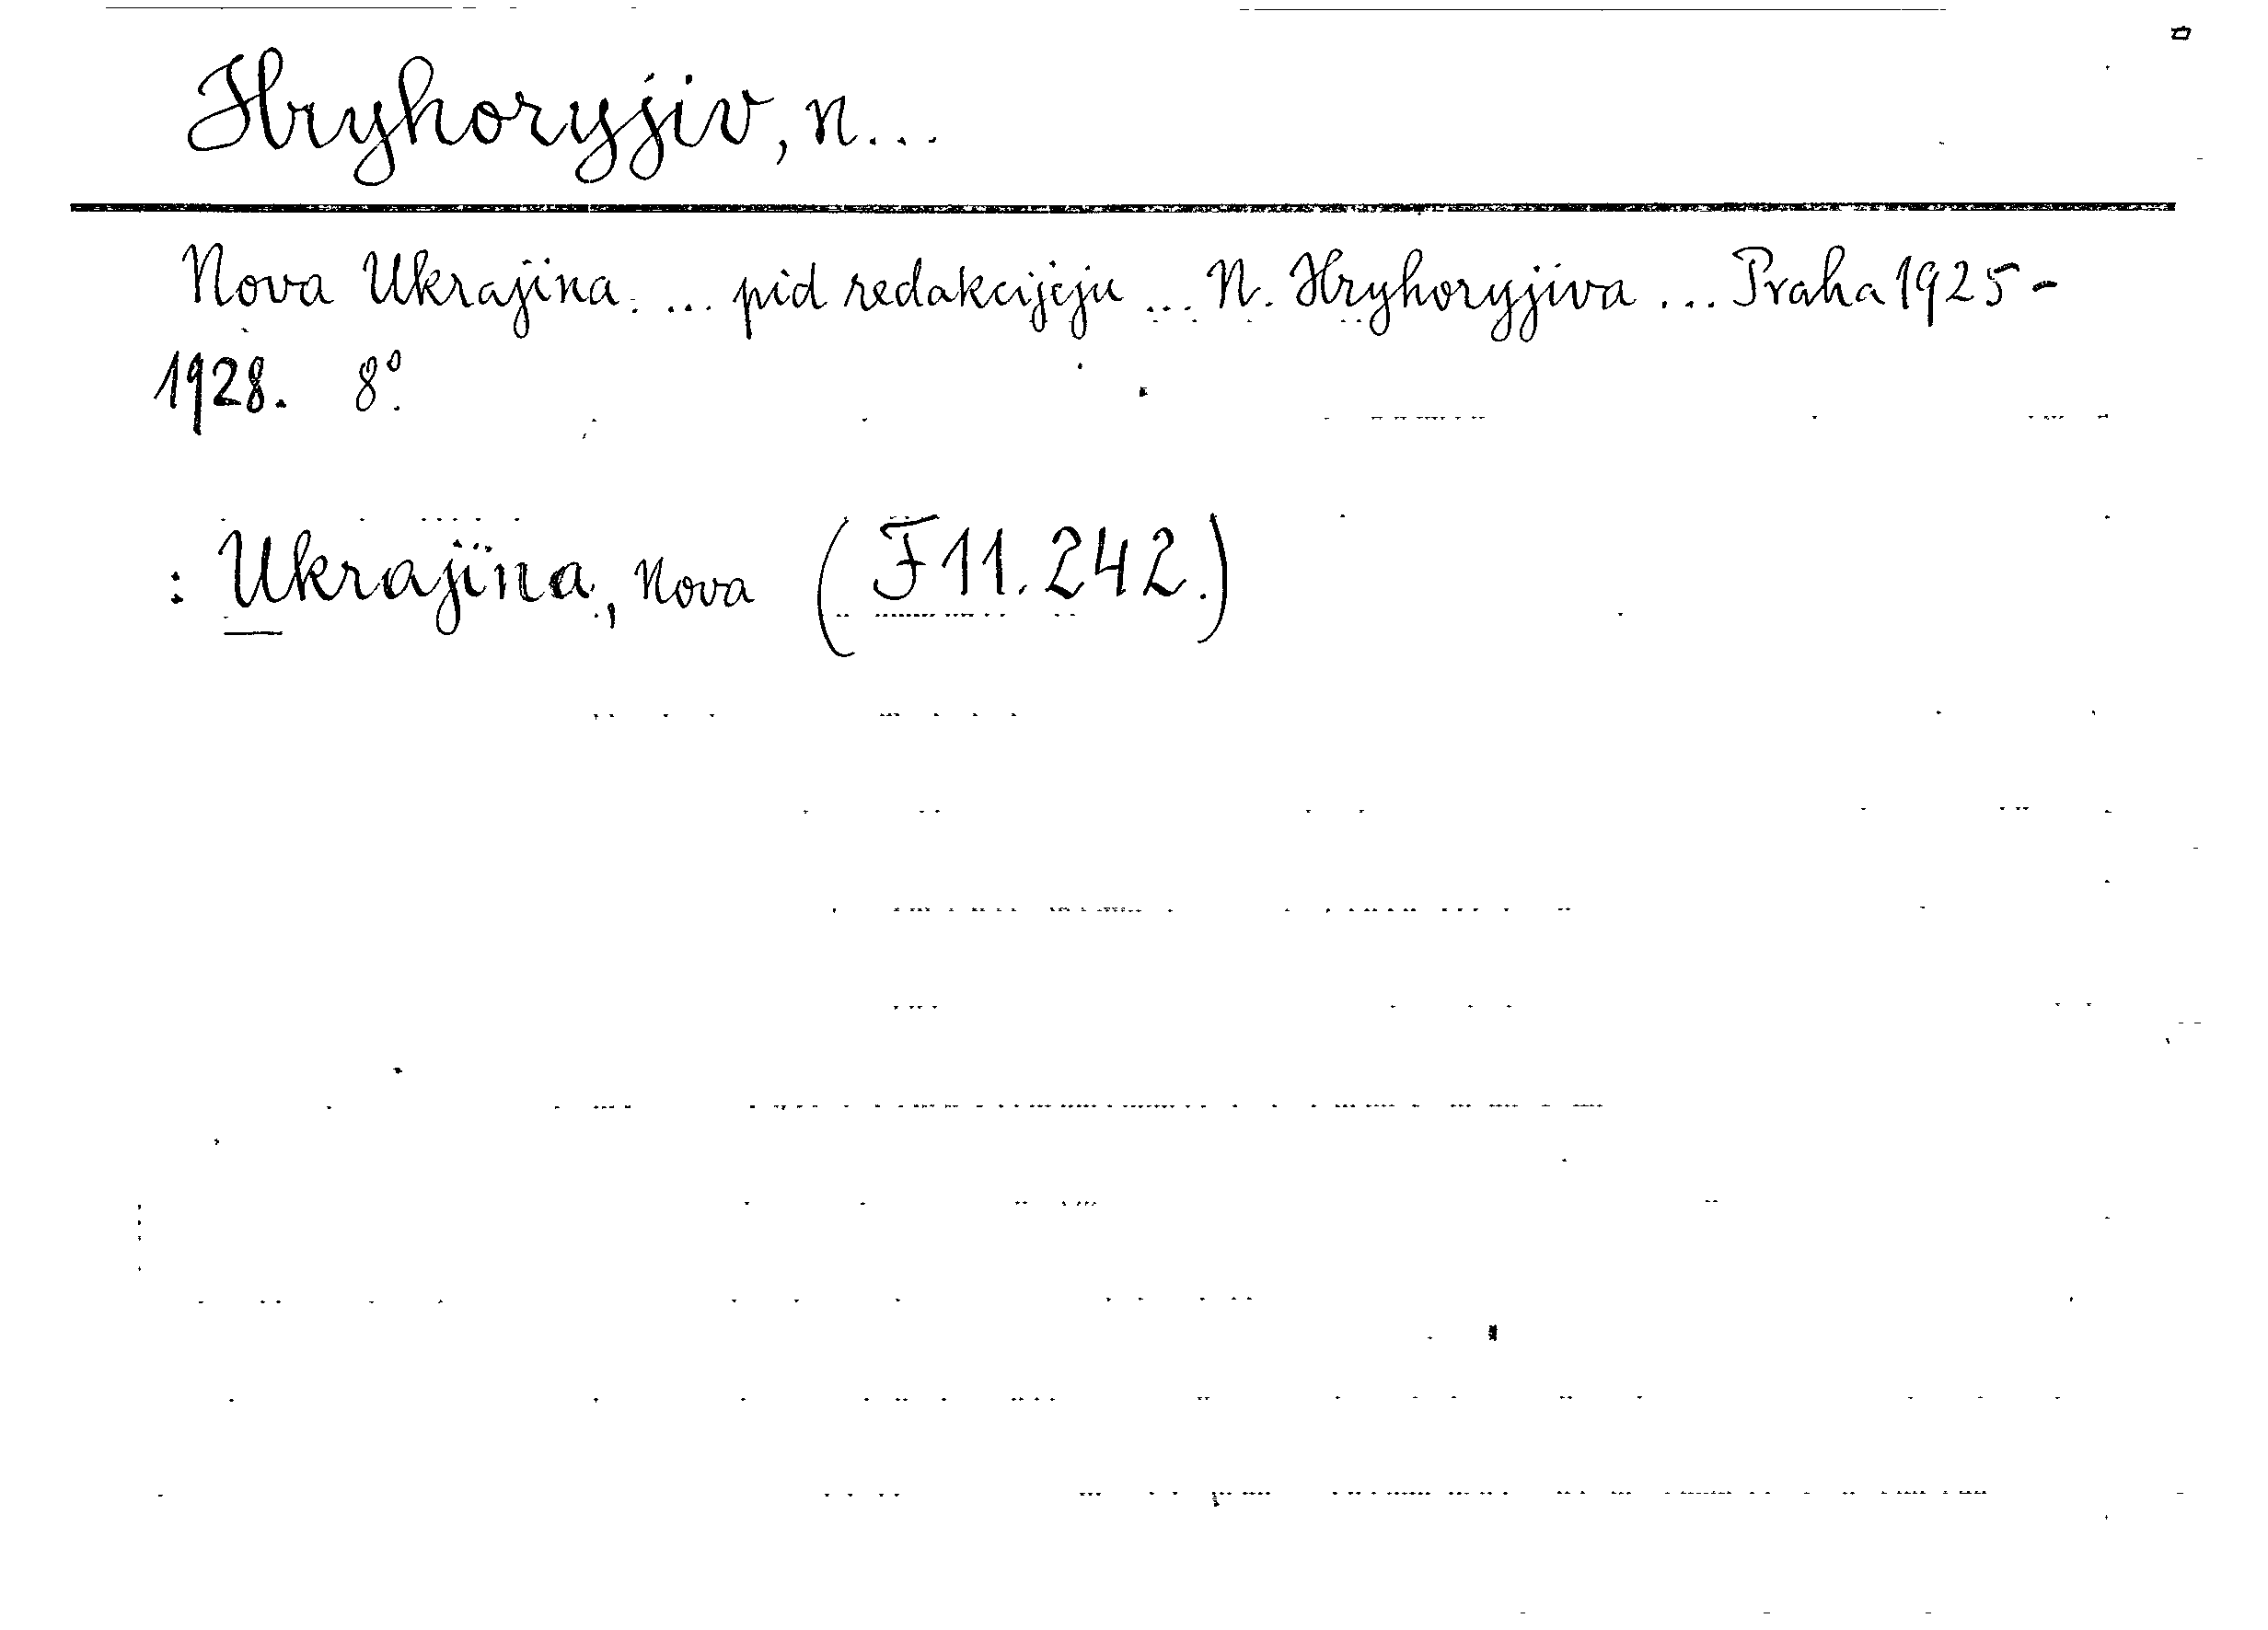 Hryhoryjiv, N...
Nova Ukrajina. ... pid redakcijeju ... N. Hryhoryjiva ... Praha 1925-
1928. 8°.
: Ukrajina, Nova (F 11.242.)